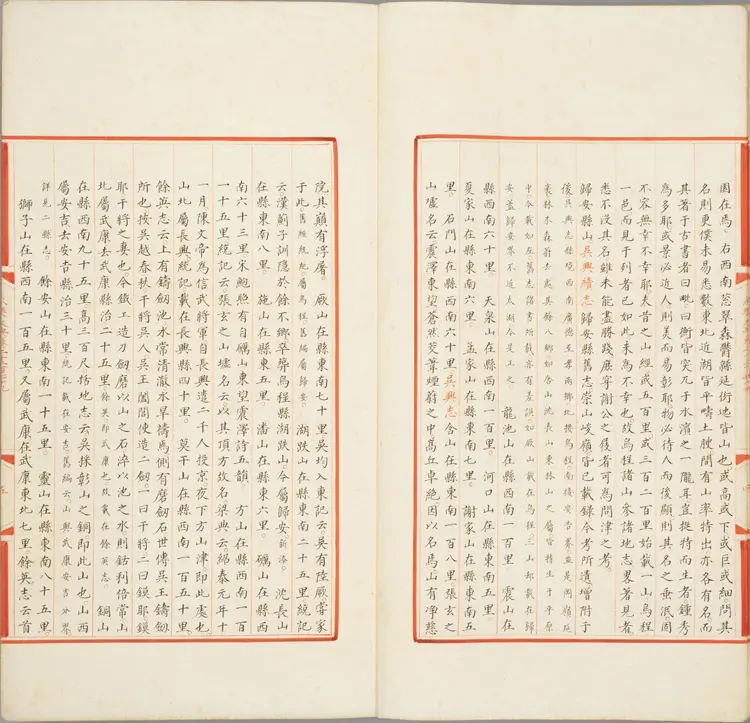 園在焉。右西南蒼翠森欝緜延街迤皆山也或高或下或巨或細。問其
名則更僕未易悉數東北近湖皆平疇土腴間有山率特出亦各有名而
其著于古書者曰毗曰衡皆突兀于水濱之一隴耳豈挺特而生者鍾秀
為多耶或景必近人則美而易彰耶物必待人而後顯則其名之垂泯固
不容無幸不幸耶夫昔之山經或五百里或三百二百里始載一山烏程
一邑而見于列者已如此未為不幸也故烏程諸山參諸地志畧著見者。
悉不沒其名雖未能盡勝踐庶穿謝公之屐者可為問津之考。
歸安縣山吳興續志歸安縣舊志崇山峻嶺皆已載錄今考所遺增附于
後吳興志縣境西南廣德至孝兩鄉地接烏程南接安吉界並是岡嶺延
袤林木森蔚去處其餘八鄉如含山沈長山東林山之屬皆特生于平原
中今載如左舊志諸書所載亦有差誤如厥山載在烏程三山却載在歸
安蓋歸安界不近太湖今是正之 龍池山在縣西南一百里 震山在
縣西南六十里。天泉山在縣西南一百里。河口山在縣東南五里。
夏家山在縣東南六里。孟家山在縣東南七里。謝家山在縣東南五
里。石門山在縣西南六十里吳興志含山在縣東南一百八里張玄之
山墟名云震澤東望蒼然茭葦煙蓊之中高丘卓絕因以名焉山有淨慈
院其巔有浮屠。厥山在縣東南七十里吳均入東記云吳有陸厥嘗家
于此舊經統紀屬烏程舊編屬歸安。湖趺山在縣東南二十五里統記
云漢薊子訓隱於餘不鄉卒葬烏程縣湖趺山。今屬歸安新添。沈長山
在縣東南八里。施山在縣東五里。潘山在縣東六里。礪山在縣西
南六十三里宋鮑照有自礪山東望震澤詩五韻 方山在縣西南一百
一十五里統記云張玄之山墟名云以其頂方故名梁典云紹泰元年十
一月陳文帝為信武將軍自長興遣二千人投京夜下方山津即此處也
山北屬長興。統記載在長興縣四十里。莫干山在縣西南一百五十里。
餘英志云上有鑄劒池水常清澈水旱禱焉側有磨劒石世傳吳王鑄劒
所也按吳越春秋干將吳人吳王闔閭使造二劒一曰干將二曰鏌耶鏌
耶干將之妻也。今鐵工造刀劒磨以山之石淬以池之水則銛利倍常山
北屬武康去武康縣治二十五里餘英即武康也故載在餘英志。銅山
在縣西南九十五里高三百尺括地志云吳採彰山之銅即此山也山西
屬安吉去安吉縣治三十里統記載在安吉。舊編云山與武康安吉分界
詳見二縣志。餘安山在縣東南一百五里。靈山在縣東南八十五里。
獅子山在縣西南一百五里。又屬武康在武康東北七里。餘英志云首